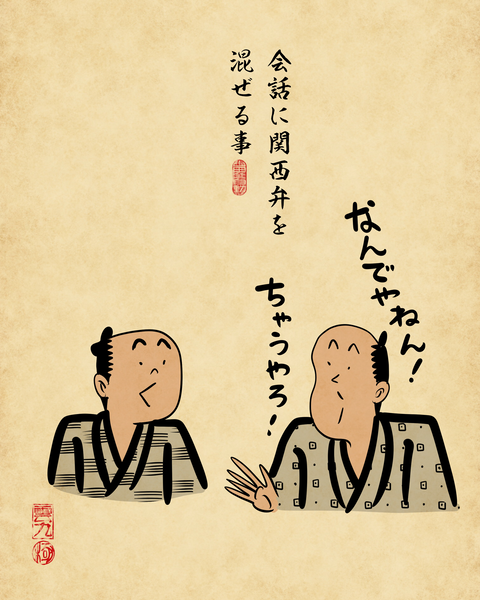 会話に関西弁を
混ぜる事
なんでやねん！
ちゃうやろ！